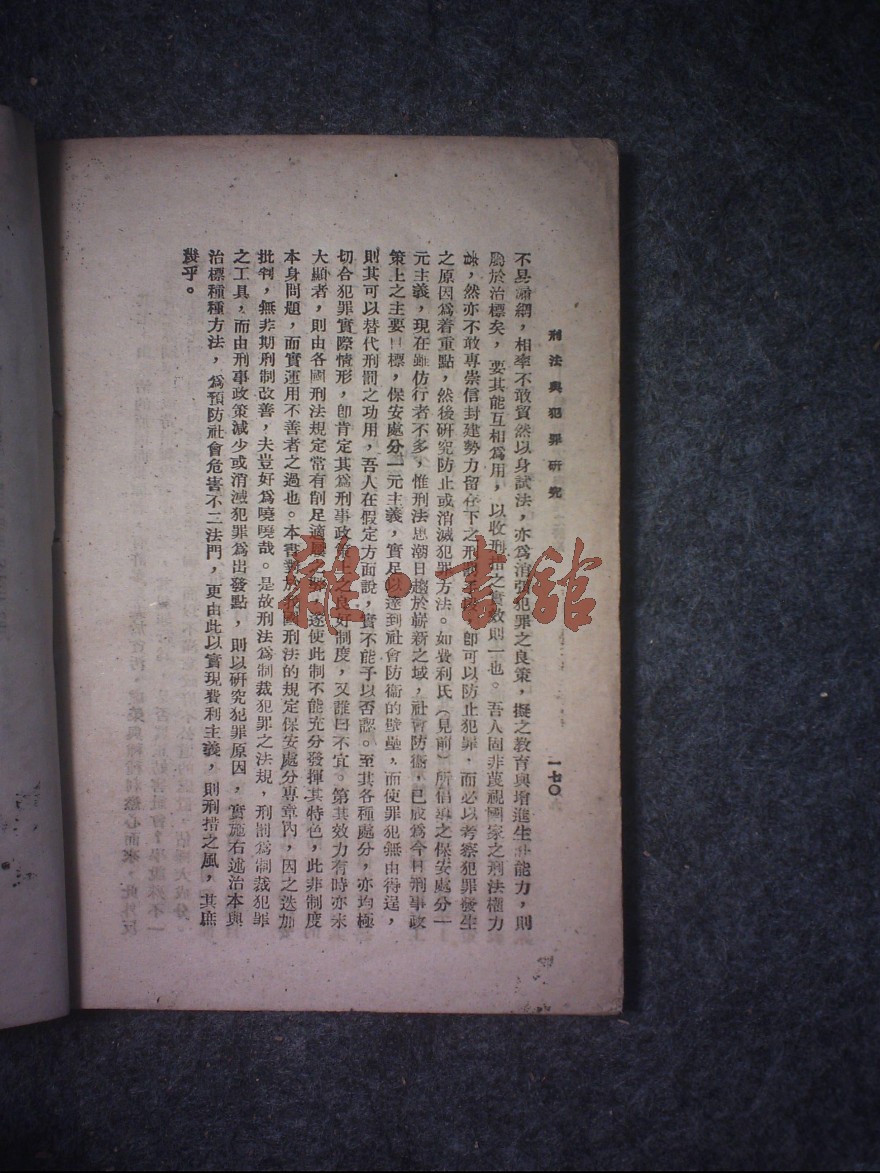 刑法與犯罪研究
一七〇
不易漏網，相率不敢貿然以身試法，亦爲消弭犯罪之良策，擬之教育與增進生計能力，則
屬於治標矣，要其能互相爲用，以收刑措之實效則一也。吾人固非蔑視國家之刑法權力
，然亦不敢專崇信封建勢力留存下之刑罰，卽可以防止犯罪，而必以考察犯罪發生
之原因爲着重點，然後研究防止或消滅犯罪方法。如費利氏（見前）所倡導之保安處分一
元主義，現在雖仿行者不多，惟刑法思潮日趨於嶄新之域，社會防衛，已成爲今日刑事政
策上之主要目標，保安處分一元主義，實足以達到社會防衛的壁壘，而使罪犯無由得逞，
則其可以替代刑罰之功用，吾人在假定方面說，實不能予以否認。至其各種處分，亦均極
切合犯罪實際情形，卽肯定其爲刑事政策上之良好制度，又誰曰不宜。第其效力有時亦未
大顯者，則由各國刑法規定當有削足適履之弊，遂使此制不能充分發揮其特色，此非制度
本身問題，而實運用不善者之過也。本書對於我國刑法的規定保安處分專章內，因之迭加
批判，無非期刑制改善，夫豈好爲嘵嘵哉。是故刑法爲制裁犯罪之法規，刑罰爲制裁犯罪
之工具，而由刑事政策減少或消滅犯罪爲出發點，則以研究犯罪原因，實施右述治本與
治標種種方法，爲預防社會危害不二法門，更由此以實現費利主義，則刑措之風，其庶
幾乎。
雜·書館